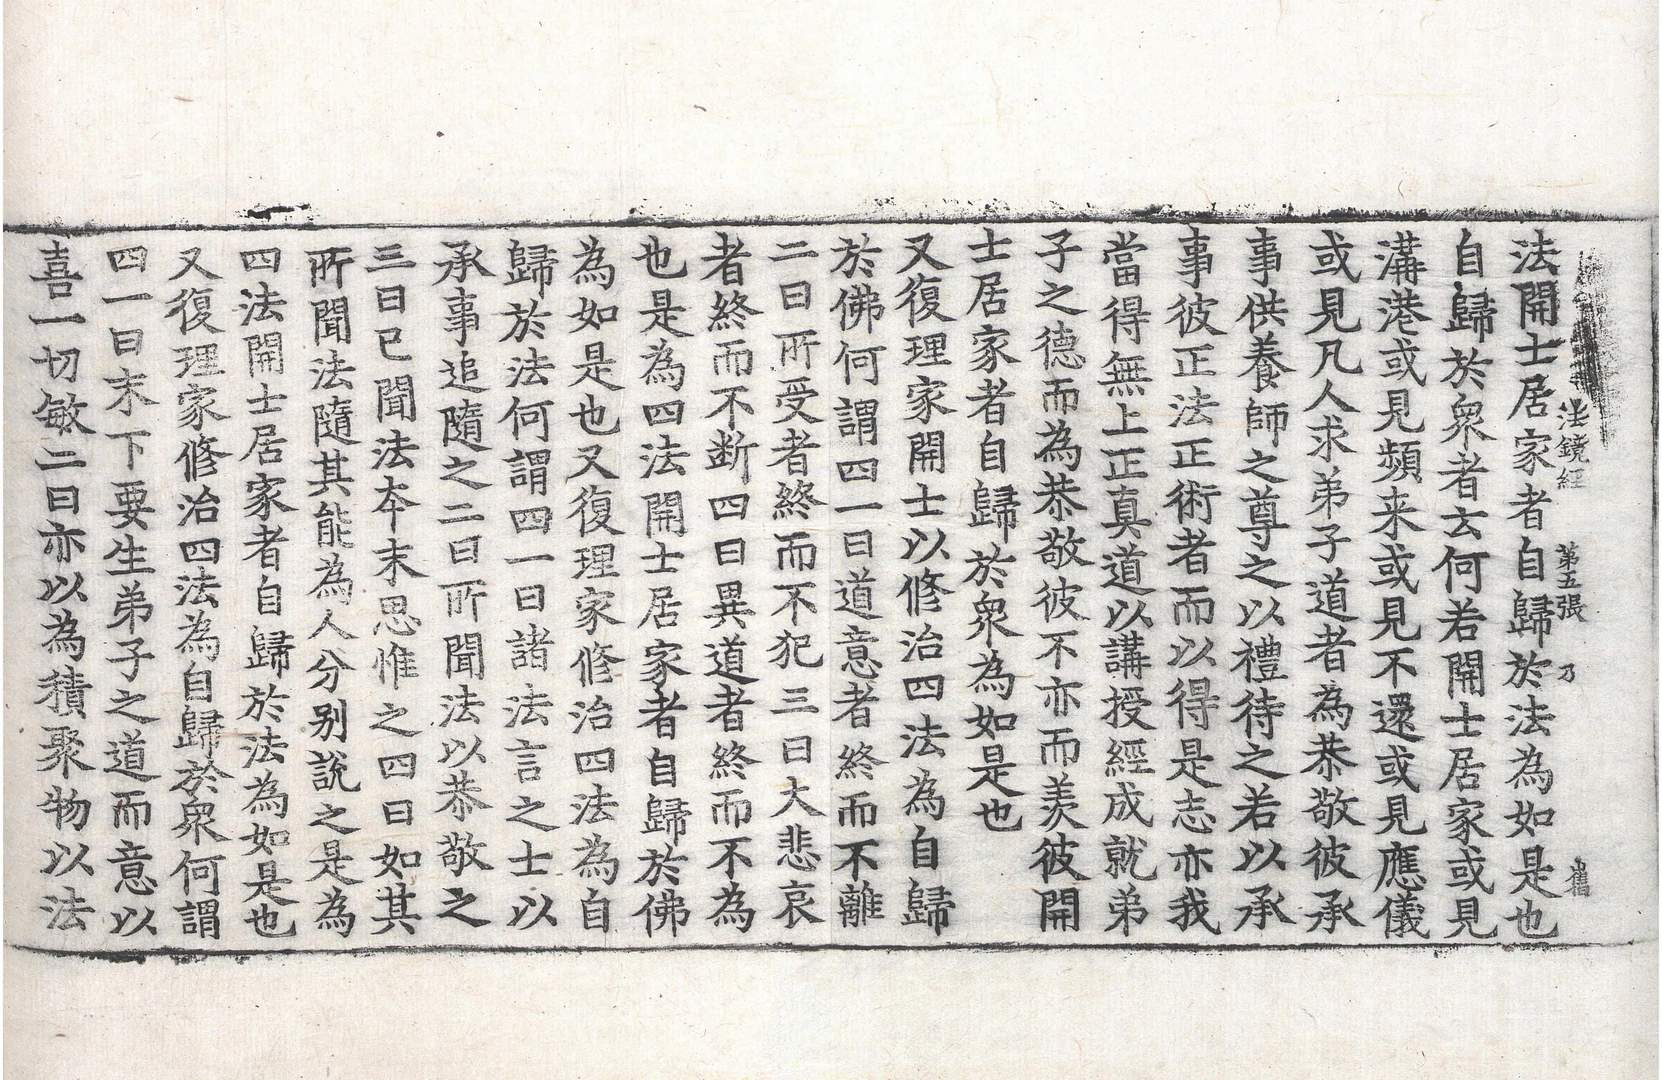 法鏡經 第五張 乃
法開士居家者自歸於法為如是也
自歸於衆者玄何若開士居家或見
溝港或見頻来或見不還或見應儀
或見凡人求弟子道者為恭敬彼承
事供養師之尊之以禮待之若以承
事彼正法正術者而以得是志亦我
當得無上正真道以講授經成就弟
子之德而為恭敬彼不亦而羨彼開
士居家者自歸於衆為如是也
又復理家開士以修治四法為自歸
於佛何謂四一曰道意者終而不離
二曰所受者終而不犯三曰大悲哀
者終而不断四曰異道者終而不為
也是為四法開士居家者自歸於佛
為如是也又復理家修治四法為自
歸於法何謂四一曰諸法言之士以
承事追隨之二曰所聞法以恭敬之
三曰已聞法本末思惟之四曰如其
所聞法隨其能為人分别說之是為
四法開士居家者自歸於法為如是也
又復理家修治四法為自歸於衆何謂
四一曰末下要生弟子之道而意以
喜一切敏二曰亦以為積聚物以法